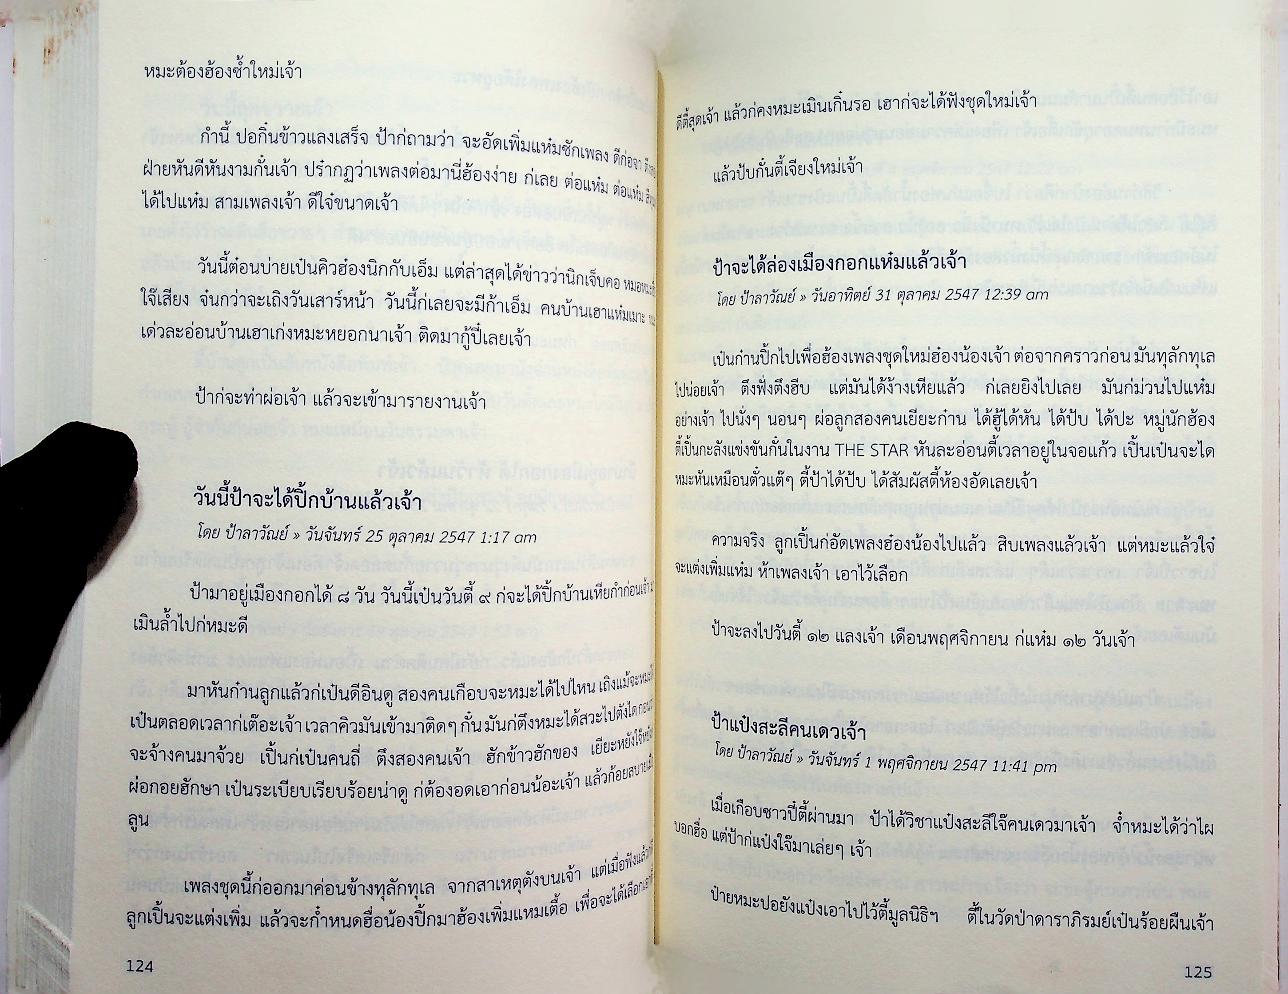 หมะต้องฮ้องซ้ำใหม่เจ้า
กำนี้ ปอกิ๋นข้าวแลงเสร็จ ป้าก่ถามว่า จะอัดเพิ่มแห๋มซักเพลง ดีก่อจา
ฝ่ายหันดีหันงามกั๋นเจ้า ปร๋ากฏว่าเพลงต่อมานี่ฮ้องง่าย ก่เลย ต่อแห๋ม ต่อแห๋ม
ได้ไปแห๋ม สามเพลงเจ้า ดีใจ๋ขนาดเจ้า
วันนี้ต๋อนบ่ายเป๋นคิวฮ้องนิกกับเอ็ม แต่ล่าสุดได้ข่าวว่านิกเจ็บคอ
ใจ๊เสี่ยง จ๋นกว่าจะเถิงวันเสาร์หน้า วันนี้ก่เลยจะมีก้าเอ็ม คนบ้านเฮาแห๋มเมาะ
เด่วละอ่อนบ้านเฮาเก่งหมะหยอกนาเจ้า ติดมากู้ปี๋เลยเจ้า
ป้าก่จะทำผ่อเจ้า แล้วจะเข้ามารายงานเจ้า
วันนี้ป้าจะได้ปิ๊กบ้านแล้วเจ้า
โดย ป้าลาวัณย์ » วันจันทร์ 25 ตุลาคม 2547 1:17 am
ป้ามาอยู่เมืองกอกได้ ๘ วัน วันนี้เป๋นวันตี้ ๙ ก่จะได้ปิ๊กบ้านเหียกำก่อนเจ้า
เมินล้ำไปก่หมะดี
มาหันก๋านลูกแล้วก่เป๋นดีอินดู สองคนเกือบจะหมะได้ไปไหน เถิงแม้จะหมะ
เป๋นตลอดเวลาก่เต๊อะเจ้า เวลาคิวมันเข้ามาติดๆ กั๋น มันก่ตึงหมะได้สวะไปตังใด
จะจ้างคนมาจ้วย เปิ้นก่เป๋นคนถี่ ตึงสองคนเจ้า ฮักข้าวฮักของ เยียะหยัง
ผ่อกอยฮักษา เป๋นระเบียบเรียบร้อยน่าดู ก่ต้องอดเอาก่อนน้อะเจ้า แล้วก้อยสบาย
ลูน
เพลงชุดนี้ก่ออกมาค่อนข้างทุลักทุเล จากสาเหตุตังบนเจ้า แต่เมื่อฟังแล้ว
ลูกเปิ้นจะแต่งเพิ่ม แล้วจะก๋ำหนดฮื่อน้องปิ๊กมาฮ้องเพิ่มแหมเตื้อ เพื่อจะได้เลือก
124
ดีตี้สุดเจ้า แล้วก่คงหมะเมินเกิ๋นรอ เฮาก่จะได้ฟังชุดใหม่เจ้า
แล้วปับกั๋นตี้เจียงใหม่เจ้า
ป้าจะได้ล่องเมืองกอกแห๋มแล้วเจ้า
โดย ป้าลาวัณย์ » วันอาทิตย์ 31 ตุลาคม 2547 12:39 am
เป๋นก๋านปิ๊กไปเพื่อฮ้องเพลงชุดใหม่ฮ้องน้องเจ้า ต่อจากคราวก่อน มันทุลักทุเล
ไปน่อยเจ้า ตึงฟั่งตึงฮีบ แต่มันได้ง้างเหียแล้ว ก่เลยยิงไปเลย มันก่ม่วนไปแห๋ม
อย่างเจ้า ไปนั่งๆ นอนๆ ผ่อลูกสองคนเยียะก๋าน ได้ฮู้ได้หัน ได้ปับ ได้ปะ หมู่นักฮ้อง
ตี้เปิ้นกะลังแข่งขันกั๋นในงาน THE STAR หันละอ่อนตี้เวลาอยู่ในจอแก้ว เป็นเป๋นจะได
หมะหันเหมือนตั๋วแต๊ๆ ตี้ป้าได้ปับ ได้สัมผัสตี้ห้องอัดเลยเจ้า
ความจริง ลูกเปิ้นก่อัดเพลงฮ้องน้องไปแล้ว สิบเพลงแล้วเจ้า แต่หมะแล้วใจ๋
จะแต่งเพิ่มแห๋ม ห้าเพลงเจ้า เอาไว้เลือก
ป้าจะลงไปวันตี้ ๑๒ แลงเจ้า เดือนพฤศจิกายน ก่แห๋ม ๑๒ วันเจ้า
ป้าแป๋งสะลีคนเดวเจ้า
โดย ป้าลาวัณย์ » วันจันทร์ 1 พฤศจิกายน 2547 11:41 pm
เมื่อเกือบซาวปี๋ตี้ผ่านมา ป้าได้วิชาแป๋งสะลีใจ๊คนเดวมาเจ้า จ๋ำหมะได้ว่าไผ
บอกฮื่อ แต่ป้าก่แป๋งใจ๊มาเล่ยๆ เจ้า
ป้ายหมะปอยังแป๋งเอาไปไว้ตี้มูลนิธิฯ ตี้ในวัดป่าดาราภิรมย์เป๋นร้อยผืนเจ้า
125